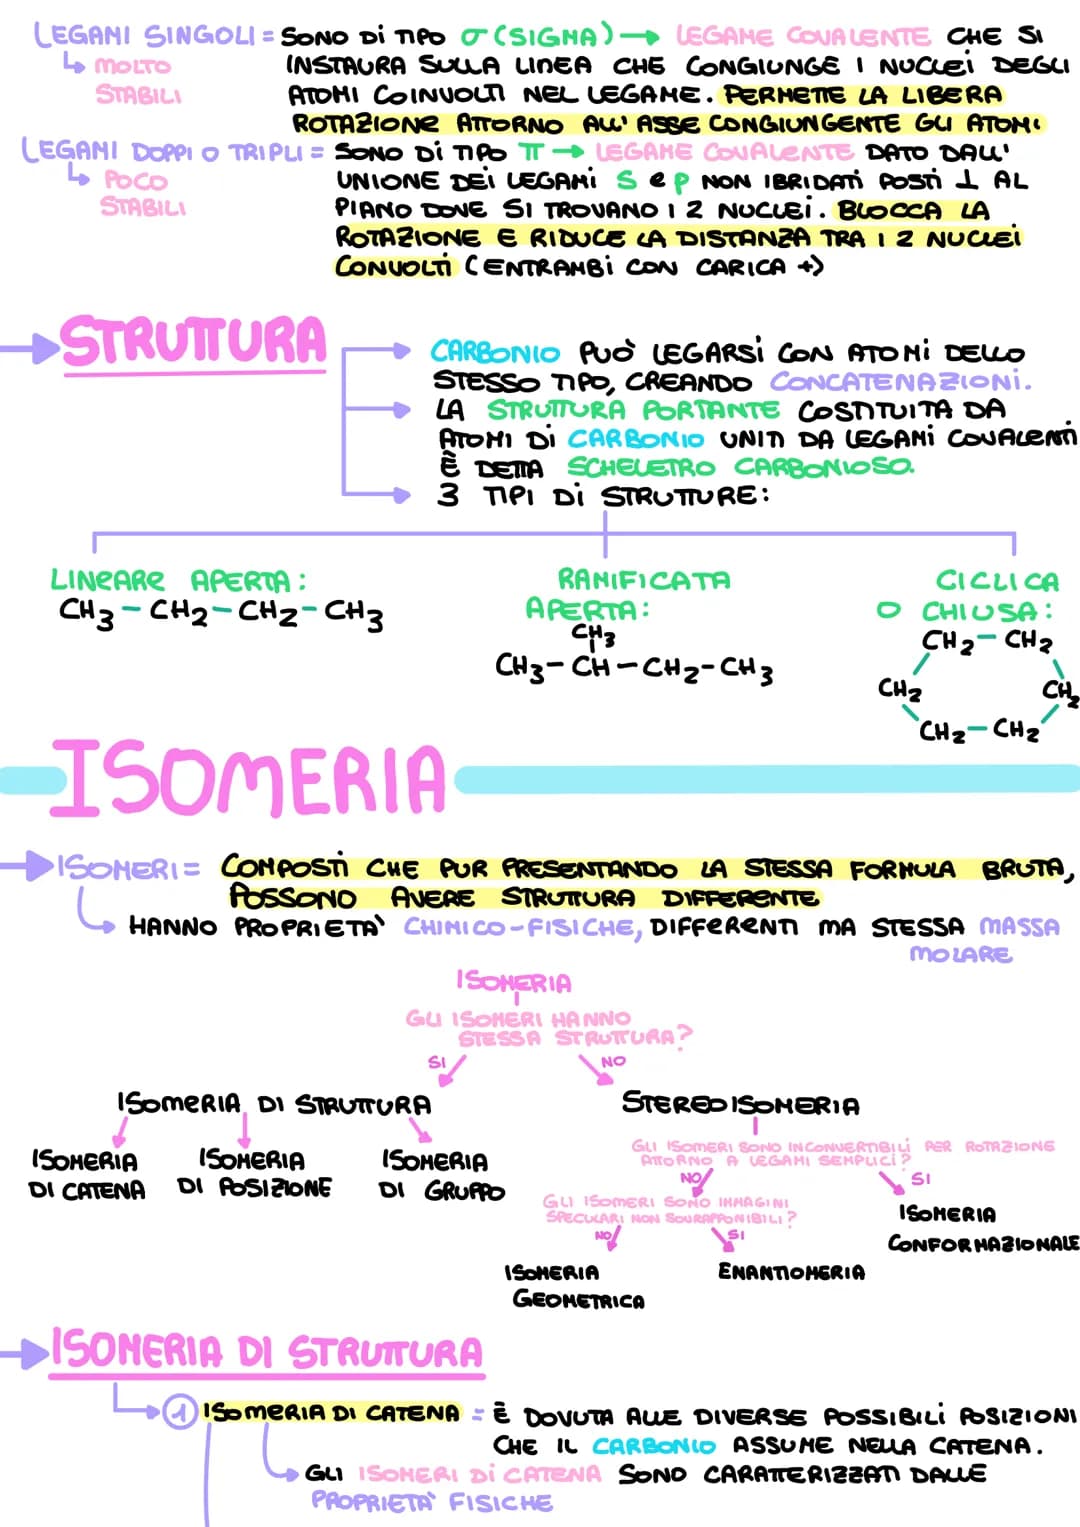 LEGAMI SINGOLI = SONO DI TIPO σ (SIGMA) → LEGAME COVALENTE CHE SI
↳ MOLTO STABILI
INSTAURA SULLA LINEA CHE CONGIUNGE I NUCLEI DEGLI
ATOMI COINVOLTI NEL LEGAME. PERMETTE LA LIBERA
ROTAZIONE ATTORNO ALL'ASSE CONGIUNGENTE GLI ATOMI
LEGAMI DOPPI O TRIPLI = SONO DI TIPO π → LEGAME COVALENTE DATO DALL'
↳ POCO STABILI
UNIONE DEI LEGAMI S e p NON IBRIDATI POSTI ⊥ AL
PIANO DOVE SI TROVANO I 2 NUCLEI. BLOCCA LA
ROTAZIONE E RIDUCE LA DISTANZA TRA I 2 NUCLEI
CONVOLTI (ENTRAMBI CON CARICA +)
→ STRUTTURA
CARBONIO PUÒ LEGARSI CON ATOMI DELLO
STESSO TIPO, CREANDO CONCATENAZIONI.
LA STRUTTURA PORTANTE COSTITUITA DA
ATOMI DI CARBONIO UNITI DA LEGAMI COVALENTI
È DETTA SCHELETRO CARBONIOSO.
3 TIPI DI STRUTTURE:
LINEARE APERTA:
CH3-CH2-CH2-CH3
RAMIFICATA
APERTA:
CH3
CH3-CH-CH2-CH3
CICLICA
O CHIUSA:
CH2-CH2
CH2 CH2
CH2-CH2
ISOMERIA
→ ISOMERI = COMPOSTI CHE PUR PRESENTANDO LA STESSA FORMULA BRUTA,
POSSONO AVERE STRUTTURA DIFFERENTE
HANNO PROPRIETA' CHIMICO-FISICHE, DIFFERENTI MA STESSA MASSA
MOLARE
ISOMERIA
GLI ISOMERI HANNO
STESSA STRUTTURA?
SI NO
ISOMERIA DI STRUTTURA STEREOISOMERIA
ISOMERIA DI CATENA
ISOMERIA DI POSIZIONE
ISOMERIA DI GRUPPO
GLI ISOMERI SONO INCONVERTIBILI PER ROTAZIONE
ATTORNO A LEGAMI SEMPLICI?
NO SI
GLI ISOMERI SONO IMMAGINI
SPECULARI NON SOVRAPPONIBILI?
ISOMERIA
CONFORMAZIONALE
NO SI
ISOMERIA
GEOMETRICA
ENANTIOMERIA
→ ISOMERIA DI STRUTTURA
1 ISOMERIA DI CATENA = È DOVUTA ALLE DIVERSE POSSIBILI POSIZIONI
CHE IL CARBONIO ASSUME NELLA CATENA.
GLI ISOMERI DI CATENA SONO CARATTERIZZATI DALLE
PROPRIETA' FISICHE